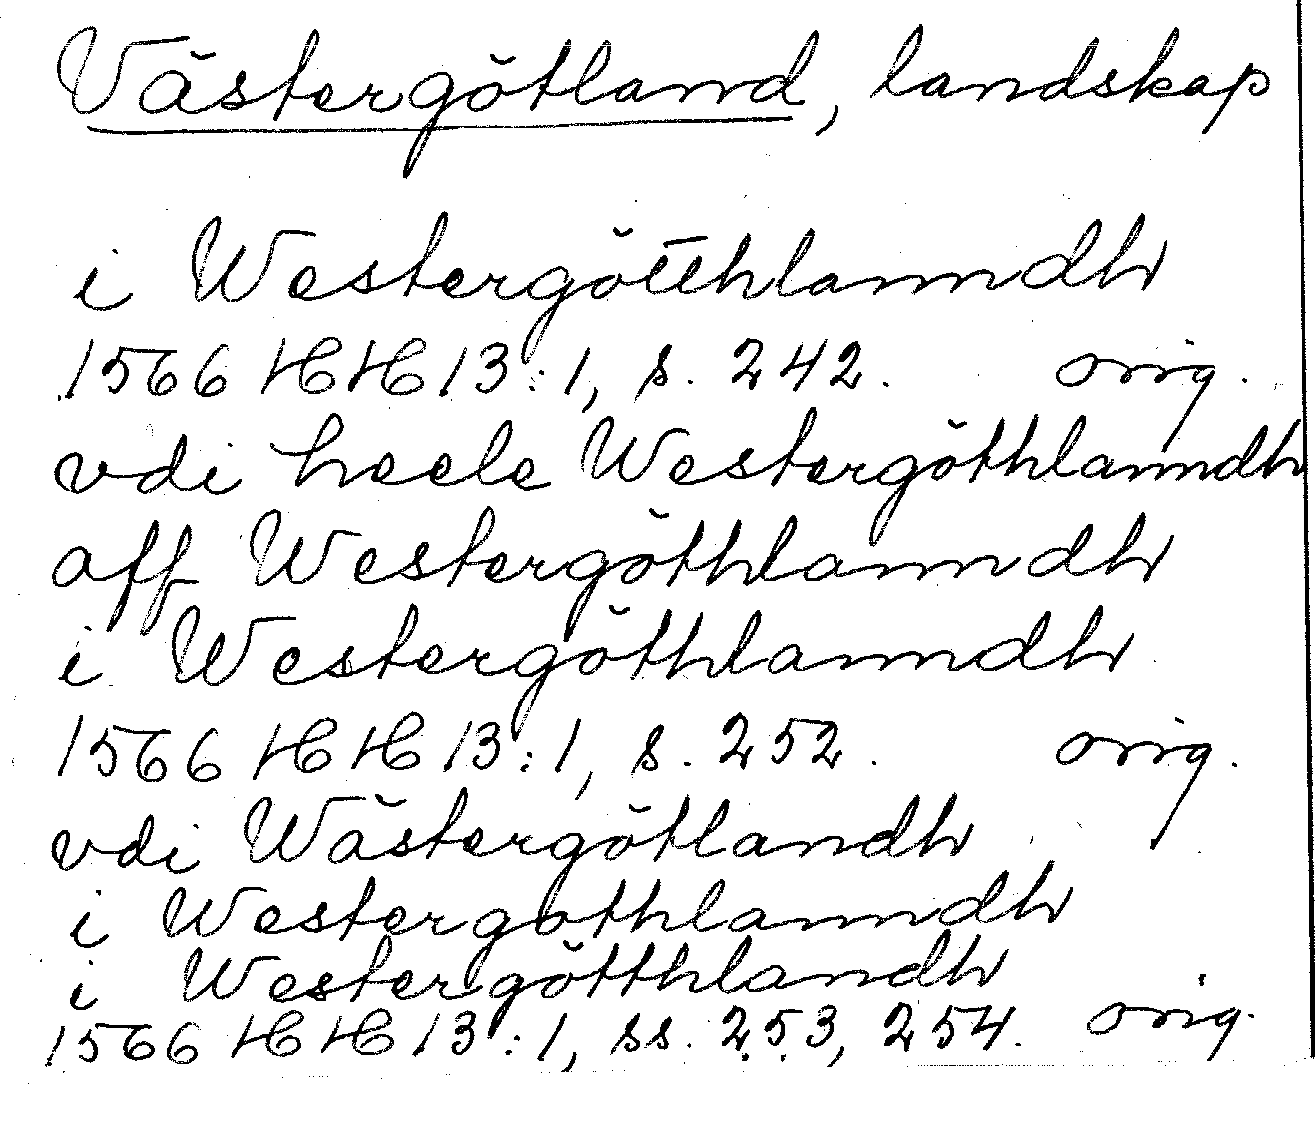 Västergötland, landskap
i Westergötthlanndh
1566 HH 13:1, s. 242. orig.
vdi heele Westergöthlanndh
aff Westergöthlanndh
i Westergöthlanndh
1566 HH 13:1, s. 252. orig.
vdi Wästergötlandh
i Westergothlanndh
i Westergötthlandh
1566 HH 13:1, ss. 253, 254. orig.